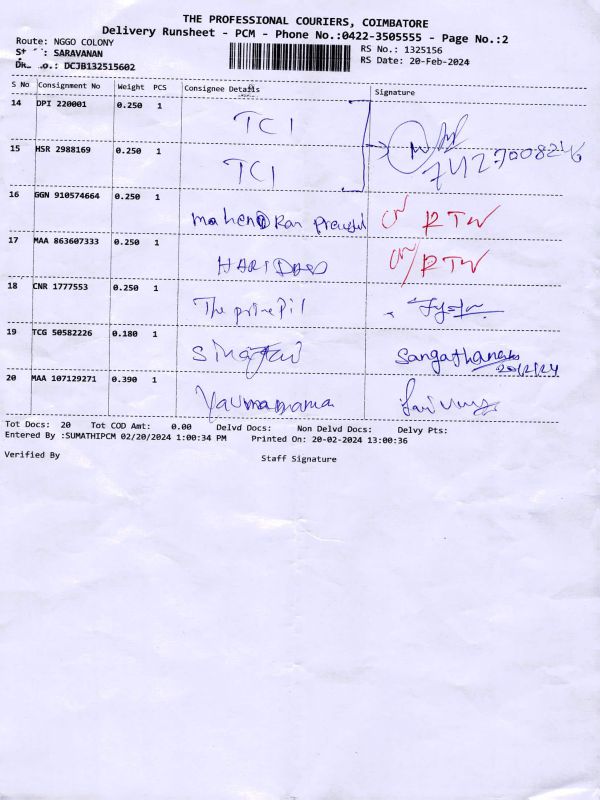 THE PROFESSIONAL COURIERS, COIMBATORE
Delivery Runsheet - PCM - Phone No.:0422-3505555 - Page No.:2
Route: NGGO COLONY
RS No.: 1325156
: SARAVANAN
RS Date: 20-Feb-2024
DCJB132515602
S No Consignment No Weight PCS Consignee Details Signature
14 DPI 220001 0.250 1 TCI
15 HSR 2988169 0.250 1 TCI 7427008246
16 GGN 910574664 0.250 1 RTN
17 MAA 863607333 0.250 1 HARIDASS RTN
18 CNR 1777553 0.250 1 The
19 TCG 50582226 0.180 1 Sangathana 20/2/24
20 MAA 107129271 0.390 1
Tot Docs: 20 Tot COD Amt: 0.00 Delvd Docs: Non Delvd Docs: Delvy Pts:
Entered By :SUMATHIPCM 02/20/2024 1:00:34 PM Printed On: 20-02-2024 13:00:36
Verified By Staff Signature